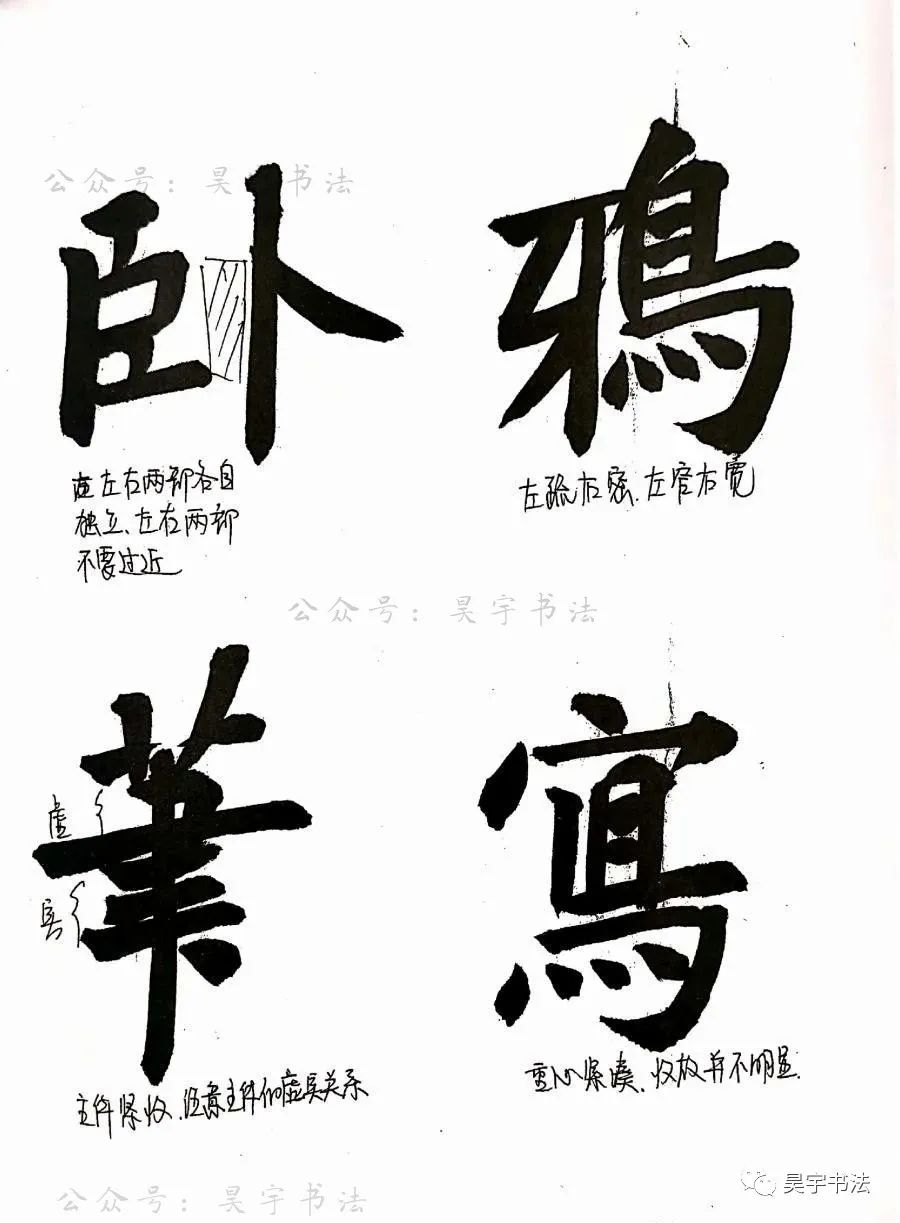 公众号：昊宇书法
卧
鴉
左右两部各自
独立、左右两部
不要过近
左疏右密、左窄右宽
公众号：昊宇书法
筆
虚
实
主件紧收、注意主件的虚实关系
寫
重心紧凑、收放并不明显.
公众号：昊宇书法
昊宇书法